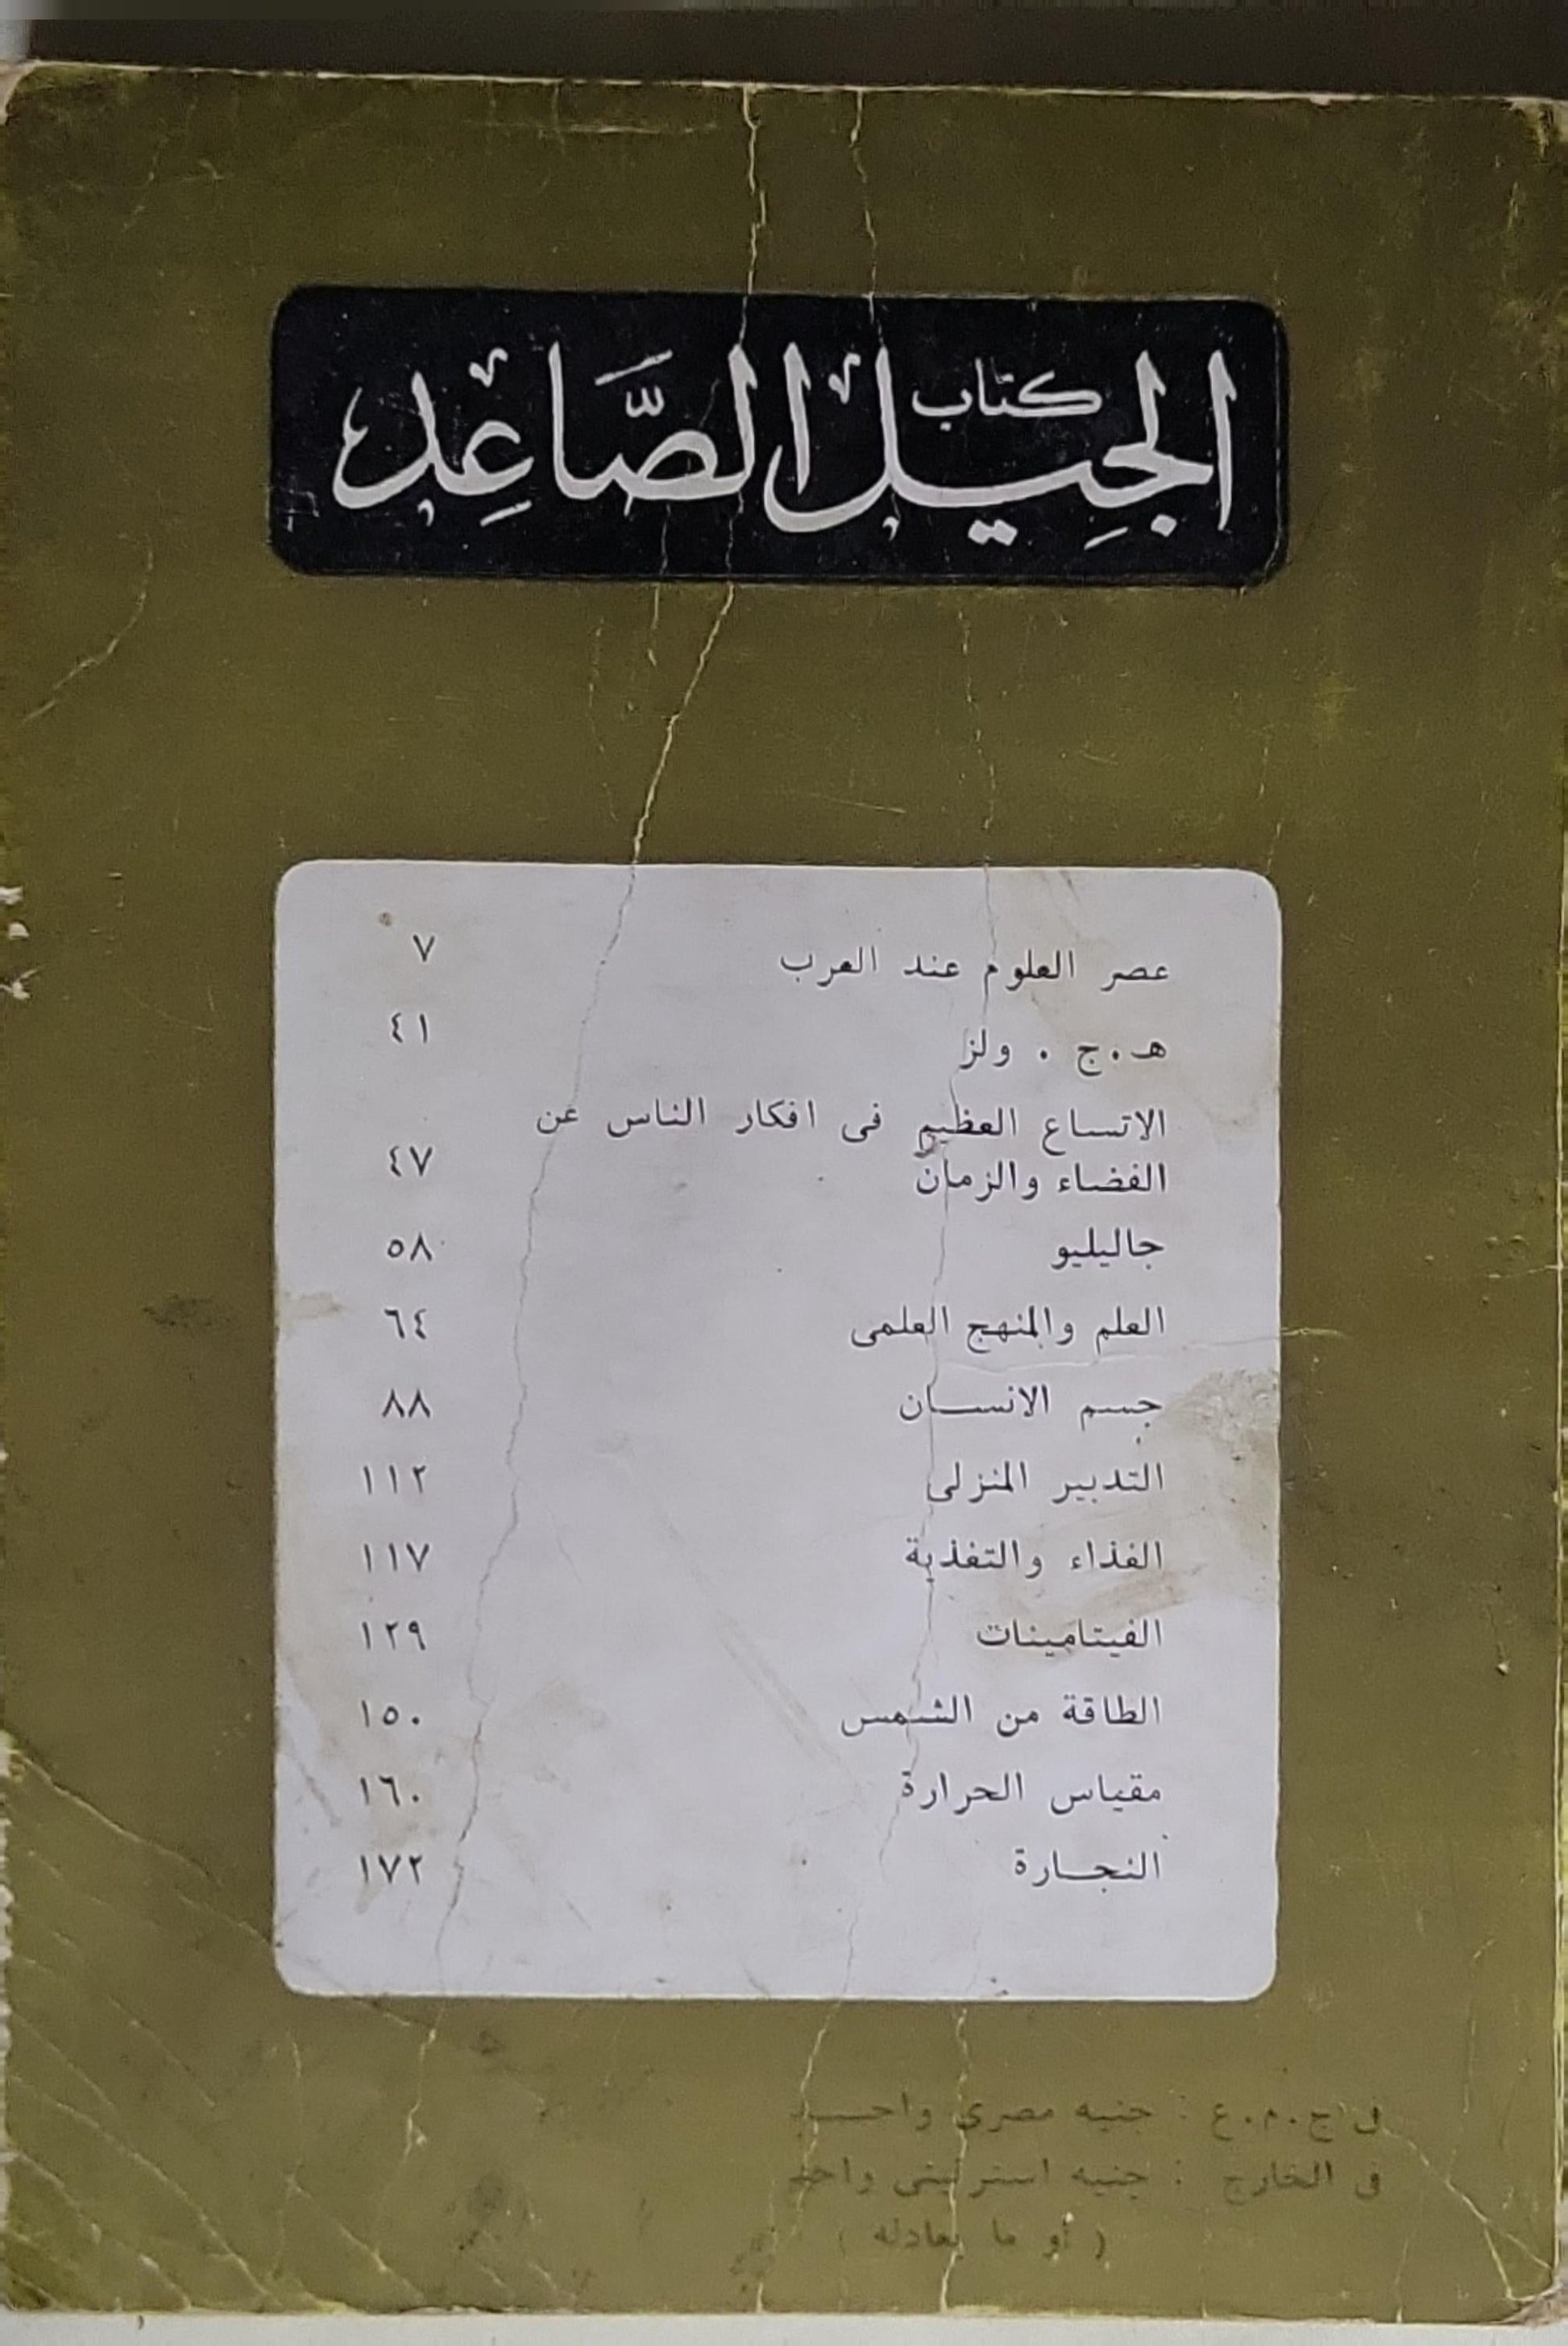 كتاب
الجِيل الصَّاعِد
عصر العلوم عند العرب ٧
هـ.ج . ولز ٤١
الاتساع العظيم فى افكار الناس عن
الفضاء والزمان ٤٧
جاليليو ٥٨
العلم والمنهج العلمى ٦٤
جسم الانسان ٨٨
التدبير المنزلى ١١٢
الغذاء والتغذية ١١٧
الفيتامينات ١٢٩
الطاقة من الشمس ١٥٠
مقياس الحرارة ١٦٠
النجارة ١٧٢
فى ج.م.ع : جنيه مصرى
فى الخارج : جنيه استرلينى
( أو ما يعادله )